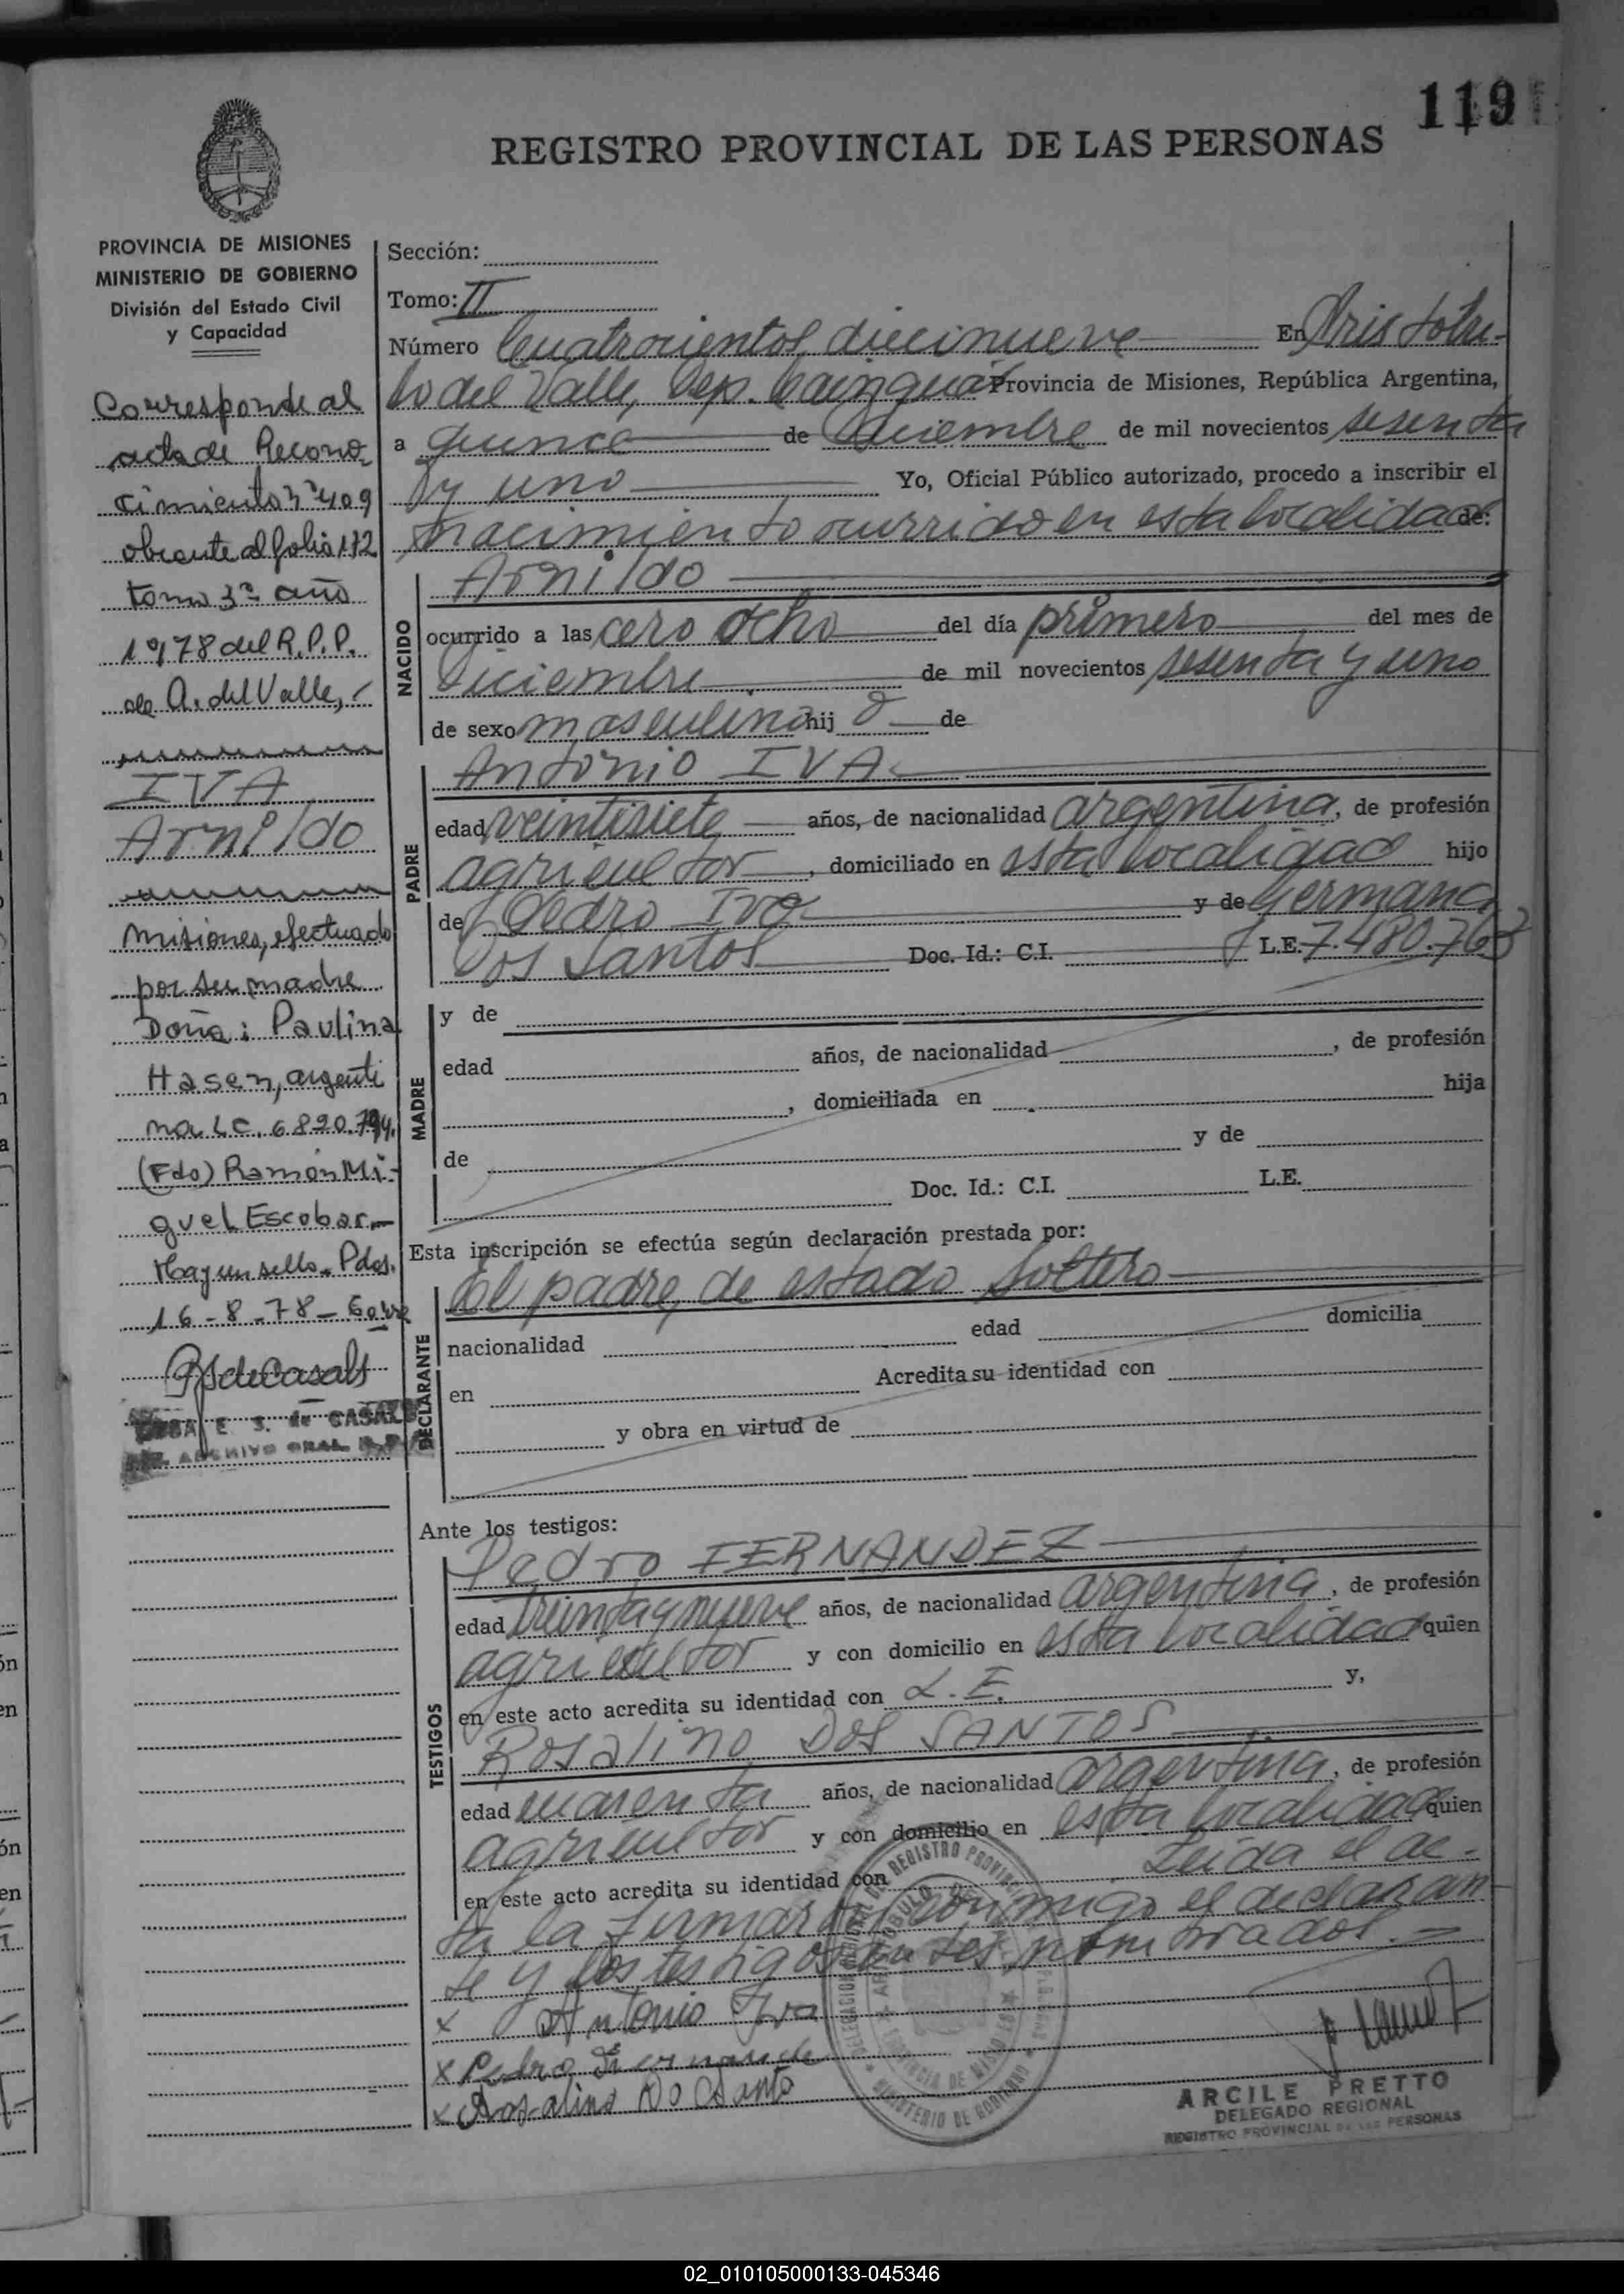 119
REGISTRO PROVINCIAL DE LAS PERSONAS
PROVINCIA DE MISIONES
MINISTERIO DE GOBIERNO
División del Estado Civil
y Capacidad
Corresponde al
acta de Recono
cimiento nº 409
obrante al folio 172
tomo 3º año
1978 del R.P.P.
de A. del Valle,
IVA
Arnildo
Misiones, efectuado
por su madre
Doña: Paulina
Hasen, argenti
na LC. 6820.794.
(Fdo) Ramón Mi-
guel Escobar.-
Hay un sello. Pdas.
16-8-78-
E. S. de CASALS
ARCHIVO GRAL. R.P.
Sección:
Tomo: II
Número Cuatrocientos diecinueve En Aristobu-
lo del Valle, Dep. Cainguás Provincia de Misiones, República Argentina,
a quince de Diciembre de mil novecientos sesenta
y uno Yo, Oficial Público autorizado, procedo a inscribir el
nacimiento ocurrido en esta localidad de:
NACIDO
Arnildo
ocurrido a las cero ocho del día primero del mes de
Diciembre de mil novecientos sesenta y uno
de sexo masculino hij o de
PADRE
Antonio IVA
edad veintisiete años, de nacionalidad argentina, de profesión
agricultor, domiciliado en esta localidad hijo
de Pedro Iva y de Germana
Dos Santos Doc. Id.: C.I. L.E. 7.480.763
MADRE
y de
edad años, de nacionalidad , de profesión
, domiciliada en hija
de y de
Doc. Id.: C.I. L.E.
Esta inscripción se efectúa según declaración prestada por:
DECLARANTE
El padre, de estado soltero
nacionalidad edad domicilia
en Acredita su identidad con
y obra en virtud de
Ante los testigos:
TESTIGOS
Pedro FERNANDEZ
edad treinta y nueve años, de nacionalidad argentina, de profesión
agricultor y con domicilio en esta localidad quien
en este acto acredita su identidad con L.E. y,
Rosalino DOS SANTOS
edad cuarenta años, de nacionalidad argentina, de profesión
agricultor y con domicilio en esta localidad quien
en este acto acredita su identidad con Leída el ac-
ta la firmaron conmigo el declaran
te y los testigos antes nombrados.=
x Antonio Iva
x Pedro
x Rosalino Do Santo
MINISTERIO DE GOBIERNO
ARCILE PRETTO
DELEGADO REGIONAL
REGISTRO PROVINCIAL DE LAS PERSONAS
02_010105000133-045346